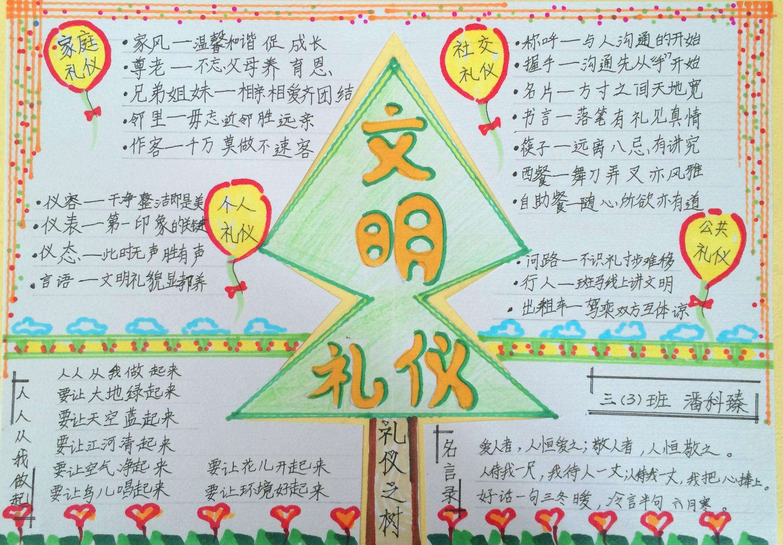 家庭
礼仪
·家风—温馨和谐促成长
·尊老—不忘父母养育恩
·兄弟姐妹—相亲相爱齐团结
·邻里—毋忘近邻胜远亲
·作客—千万莫做不速客
社交
礼仪
·称呼—与人沟通的开始
·握手—沟通先从"手"开始
·名片—方寸之间天地宽
·书言—落笔有礼见真情
·筷子—远离八忌,有讲究
·西餐—舞刀弄叉亦风雅
·自助餐—随心所欲亦有道
个人
礼仪
·仪容—干净整洁即是美
·仪表—第一印象的关键
·仪态—此时无声胜有声
·言语—文明礼貌显教养
公共
礼仪
·问路—不识礼寸步难移
·行人—斑马线上讲文明
·出租车—驾乘双方互体谅
文
明
礼仪
礼仪之树
人人从我做起
人人从我做起来
要让大地绿起来
要让天空蓝起来
要让江河清起来
要让空气净起来
要让鸟儿唱起来
要让花儿开起来
要让环境好起来
三(3)班 潘科臻
名言录
爱人者,人恒爱之;敬人者,人恒敬之。
人待我一尺,我待人一丈;人待我一丈,我把人心捧上。
好话一句三冬暖,冷言半句六月寒。